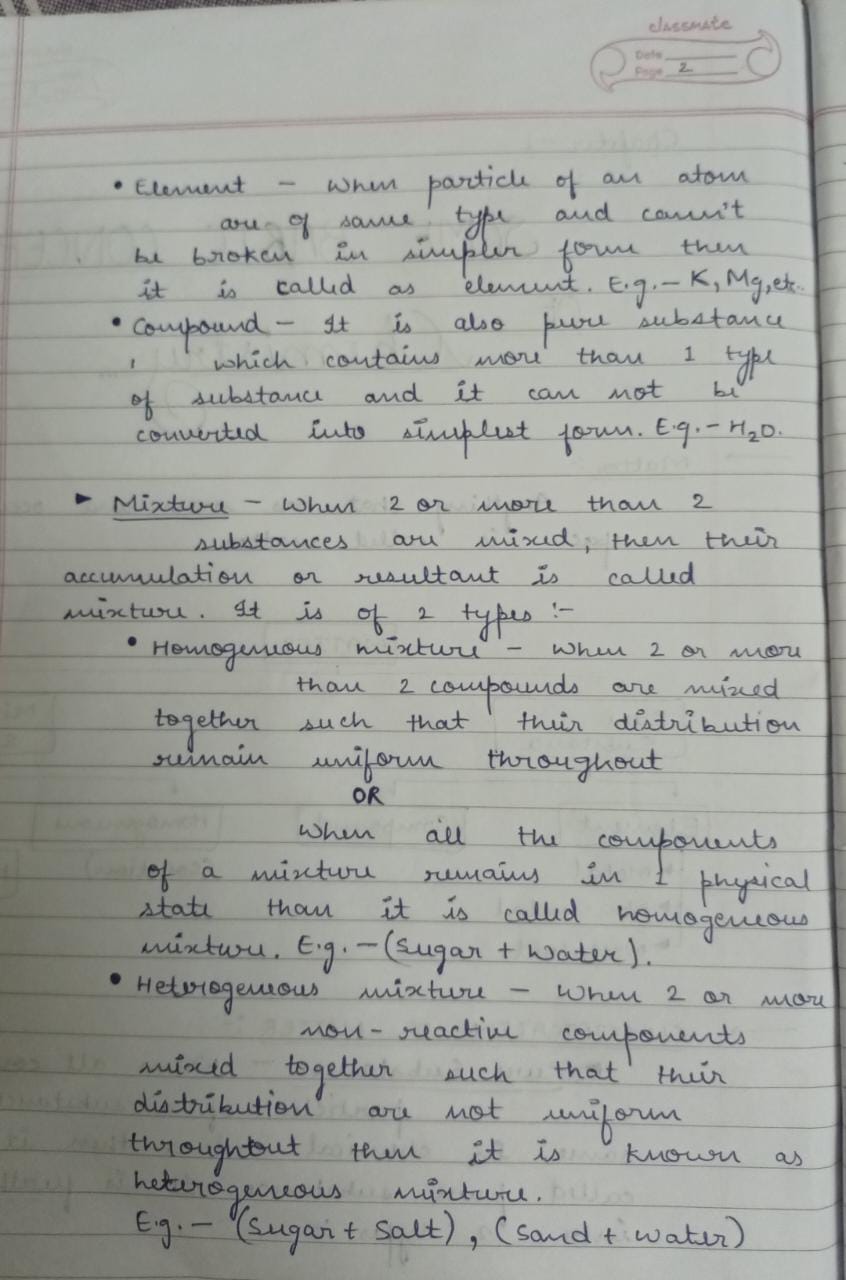 classmate
Date
Page 2
• Element - When particle of an atom
are of same type and cann't
be broken in simpler form then
it is called as element. E.g.- K, Mg, etc.
• Compound - It is also pure substance
which contains more than 1 type
of substance and it can not be
converted into simplest form. E.g.- H₂O.
► Mixture - When 2 or more than 2
substances are mixed, then their
accumulation or resultant is called
mixture. It is of 2 types :-
• Homogeneous mixture - When 2 or more
than 2 compounds are mixed
together such that their distribution
remain uniform throughout
OR
When all the components
of a mixture remains in 1 physical
state than it is called homogeneous
mixture. E.g. - (Sugar + Water).
• Heterogeneous mixture - When 2 or more
non-reactive components
mixed together such that their
distribution are not uniform
throughtout then it is known as
heterogeneous mixture.
E.g. - (Sugar + Salt), (Sand + Water)